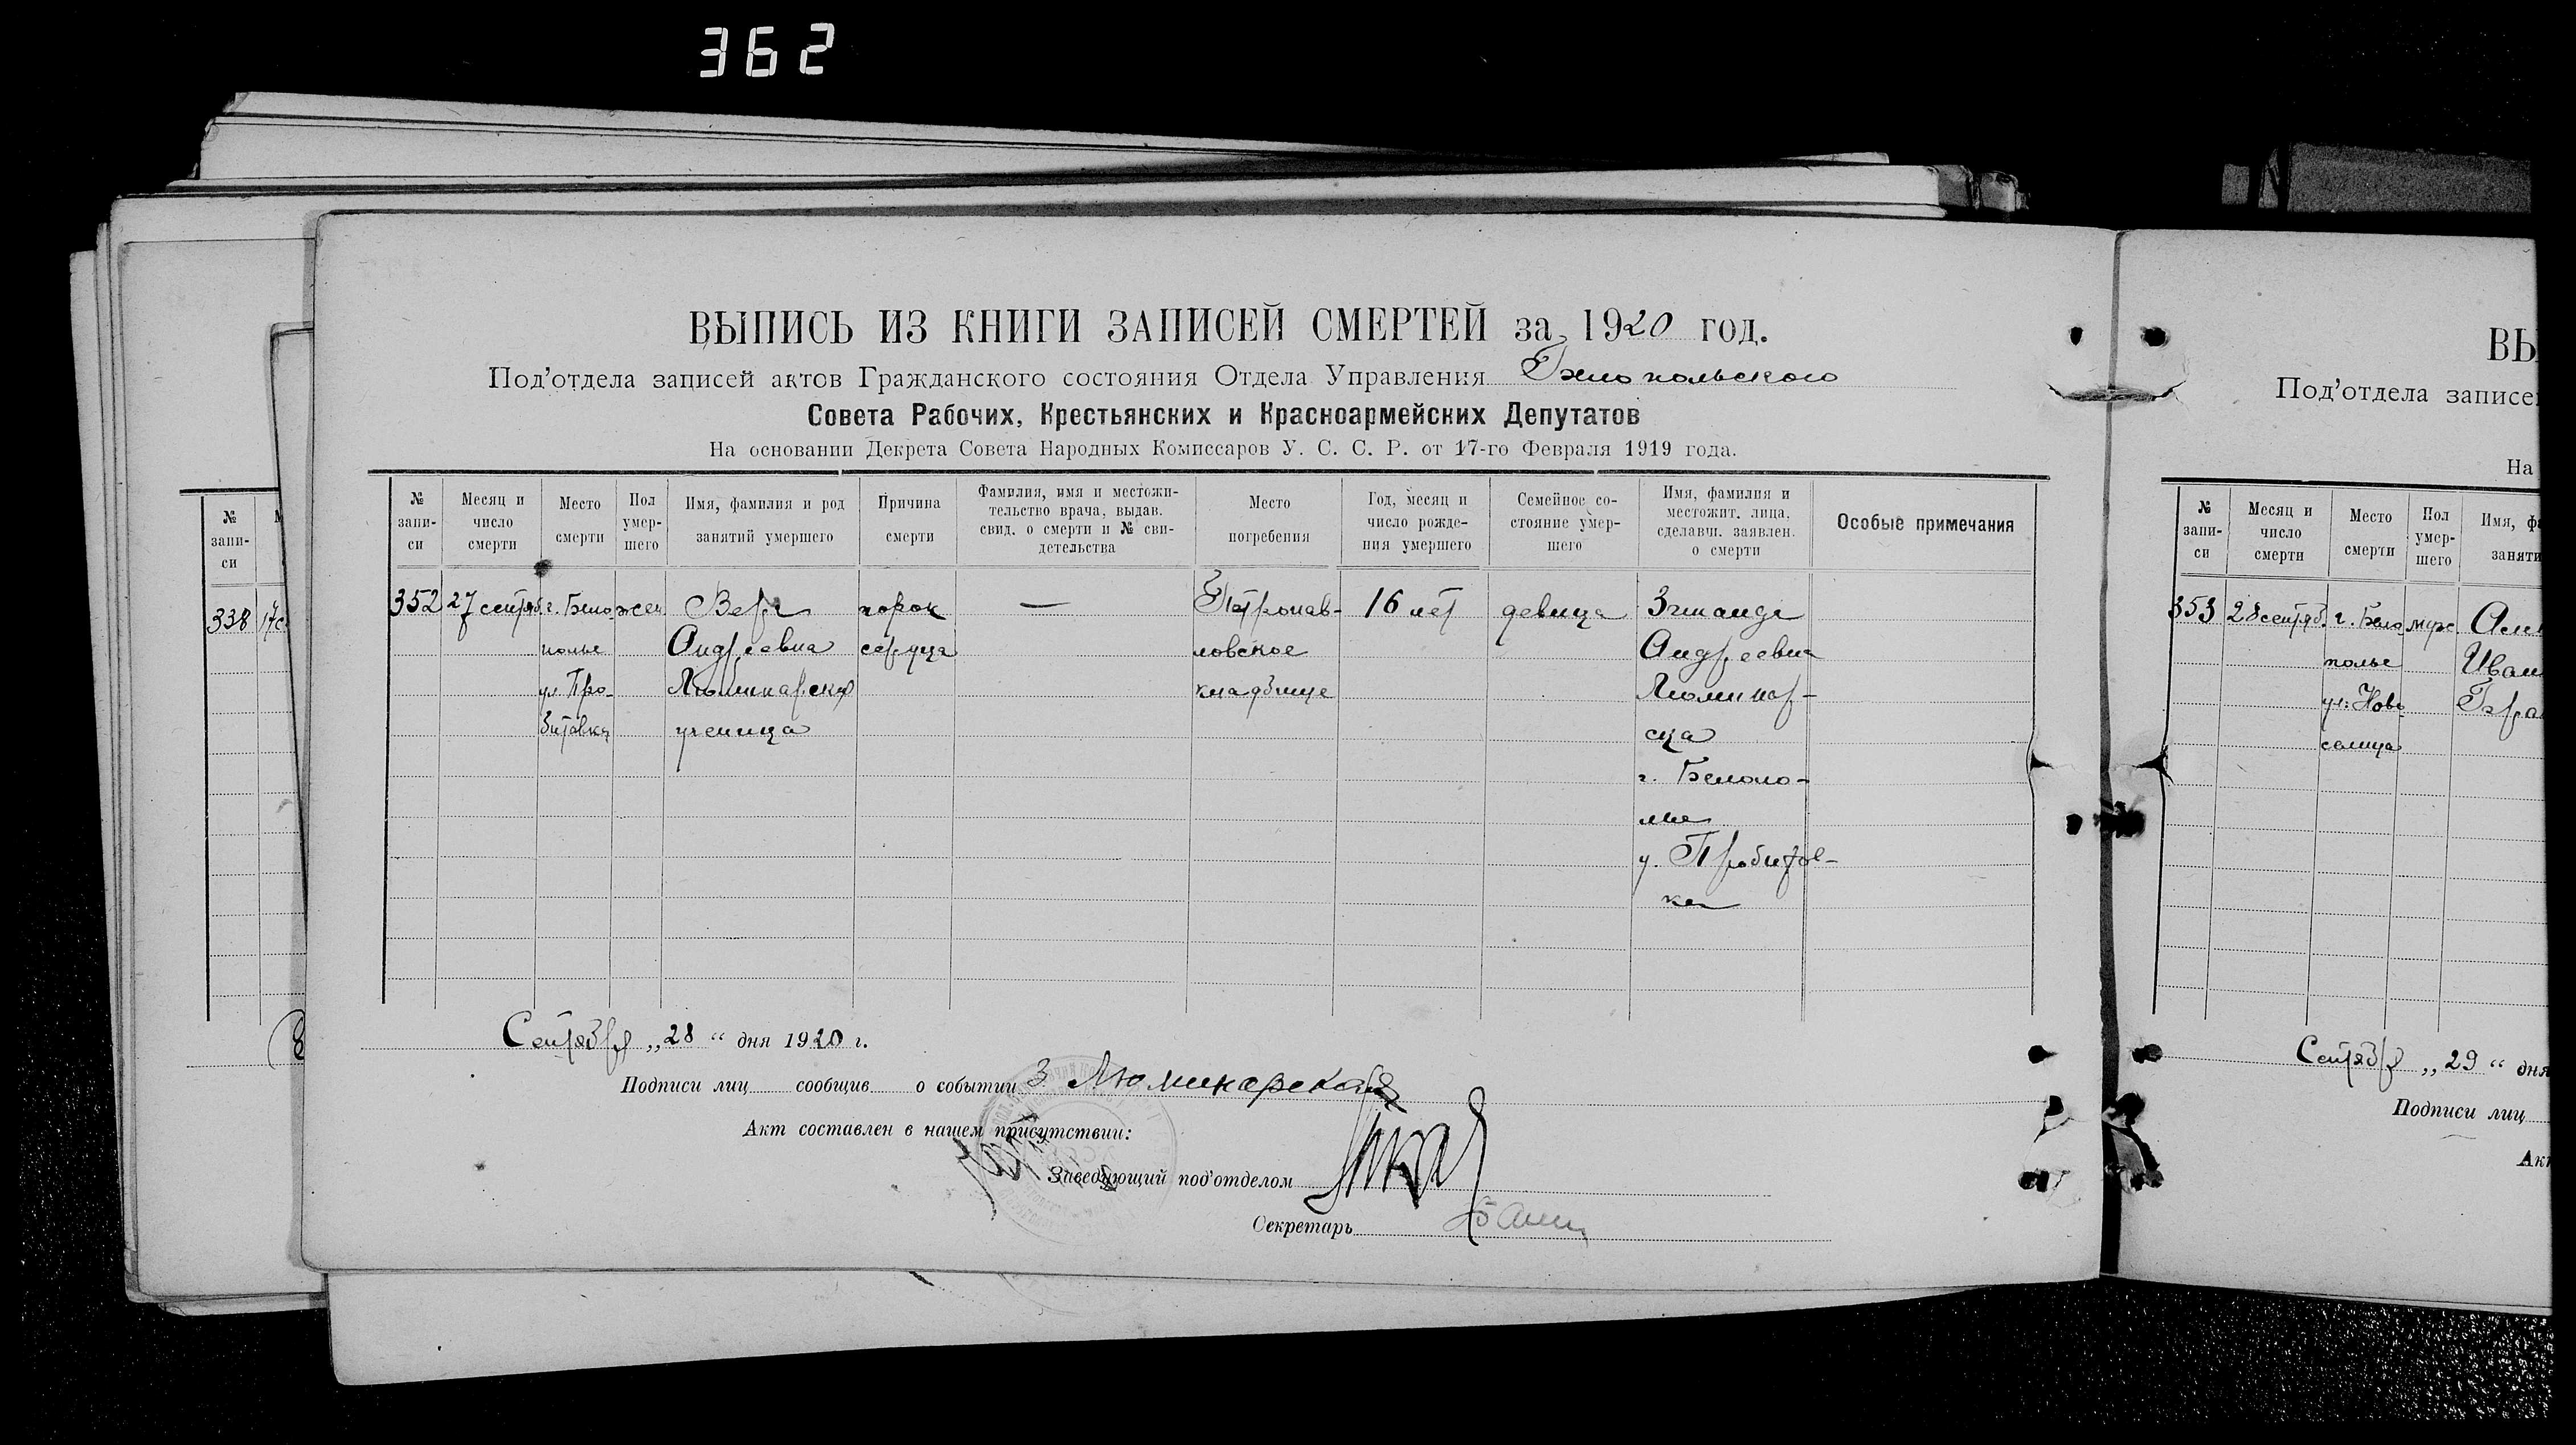 362
ВЫПИСЬ ИЗ КНИГИ ЗАПИСЕЙ СМЕРТЕЙ за 1920 год.
Под'отдела записей актов Гражданского состояния Отдела Управления Белопольского
Совета Рабочих, Крестьянских и Красноармейских Депутатов
На основании Декрета Совета Народных Комиссаров У. С. С. Р. от 17-го Февраля 1919 года.
№ запи-
си
Месяц и
число
смерти
Место
смерти
Пол
умер-
шего
Имя, фамилия и род
занятий умершего
Причина
смерти
Фамилия, имя и местожи-
тельство врача, выдав.
свид. о смерти и № сви-
детельства
Место
погребения
Год, месяц и
число рожде-
ния умершего
Семейное со-
стояние умер-
шего
Имя, фамилия и
местожит. лица,
сделавш. заявлен.
о смерти
Особые примечания
352
27 сентяб.
г. Бело-
полье
ул. Про-
битовка
жен.
Вера
Андреевна
Люминарская
ученица
порок
сердца
—
Петропав-
ловское
кладбище
16 лет
девица
Андреевна
Люминар-
ска
г. Белопо-
лье
у. Пробитов-
ка
Сентября „28“ дня 1920 г.
Подписи лиц сообщив о событии З Люминарская
Акт составлен в нашем присутствии:
Заведующий под'отделом
Секретарь
№
запи-
си
338
17 с
ВЫ
Под'отдела записей
На
№
запи-
си
Месяц и
число
смерти
Место
смерти
Пол
умер-
шего
Имя, фа
заняти
353
28 сентяб.
г. Бело
полье
ул. Ново
селица
муж.
Иван
Сентября „29“ дня
Подписи лиц
Акт